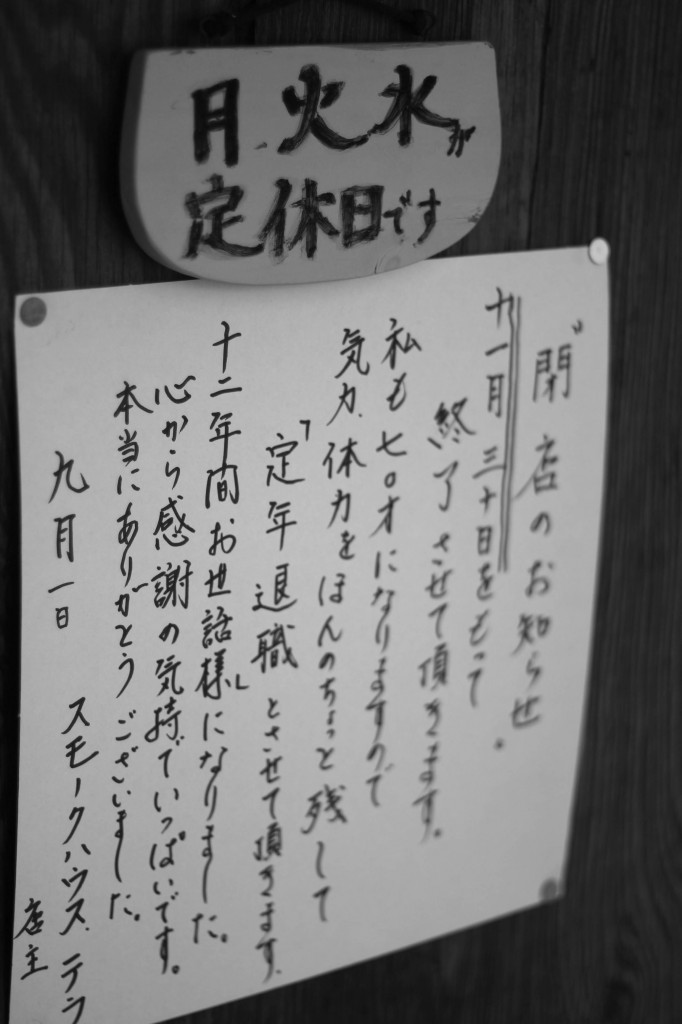 月.火水が
定休日です
"閉店のお知らせ
十一月三十日をもって
終了させて頂きます。
私も七〇才になりますので
気力.体力をほんのちょっと残して
「定年退職とさせて頂きます.
十二年間お世話様」になりました。
心から感謝の気持でいっぱいです。
本当にありがとうございました。
九月一日
スモークハウス.テラ
店主